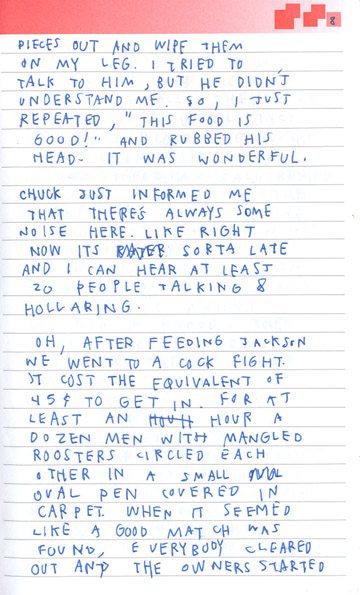 8
PIECES OUT AND WIPE THEM
ON MY LEG. I TRIED TO
TALK TO HIM, BUT HE DIDN'T
UNDERSTAND ME. SO, I JUST
REPEATED, "THIS FOOD IS
GOOD!" AND RUBBED HIS
HEAD. IT WAS WONDERFUL.
CHUCK JUST INFORMED ME
THAT THERE'S ALWAYS SOME
NOISE HERE. LIKE RIGHT
NOW ITS SORTA LATE
AND I CAN HEAR AT LEAST
20 PEOPLE TALKING &
HOLLARING.
OH, AFTER FEEDING JACKSON
WE WENT TO A COCK FIGHT.
IT COST THE EQUIVALENT OF
45¢ TO GET IN. FOR AT
LEAST AN HOUR A
DOZEN MEN WITH MANGLED
ROOSTERS CIRCLED EACH
OTHER IN A SMALL
OVAL PEN COVERED IN
CARPET. WHEN IT SEEMED
LIKE A GOOD MATCH WAS
FOUND, EVERYBODY CLEARED
OUT AND THE OWNERS STARTED